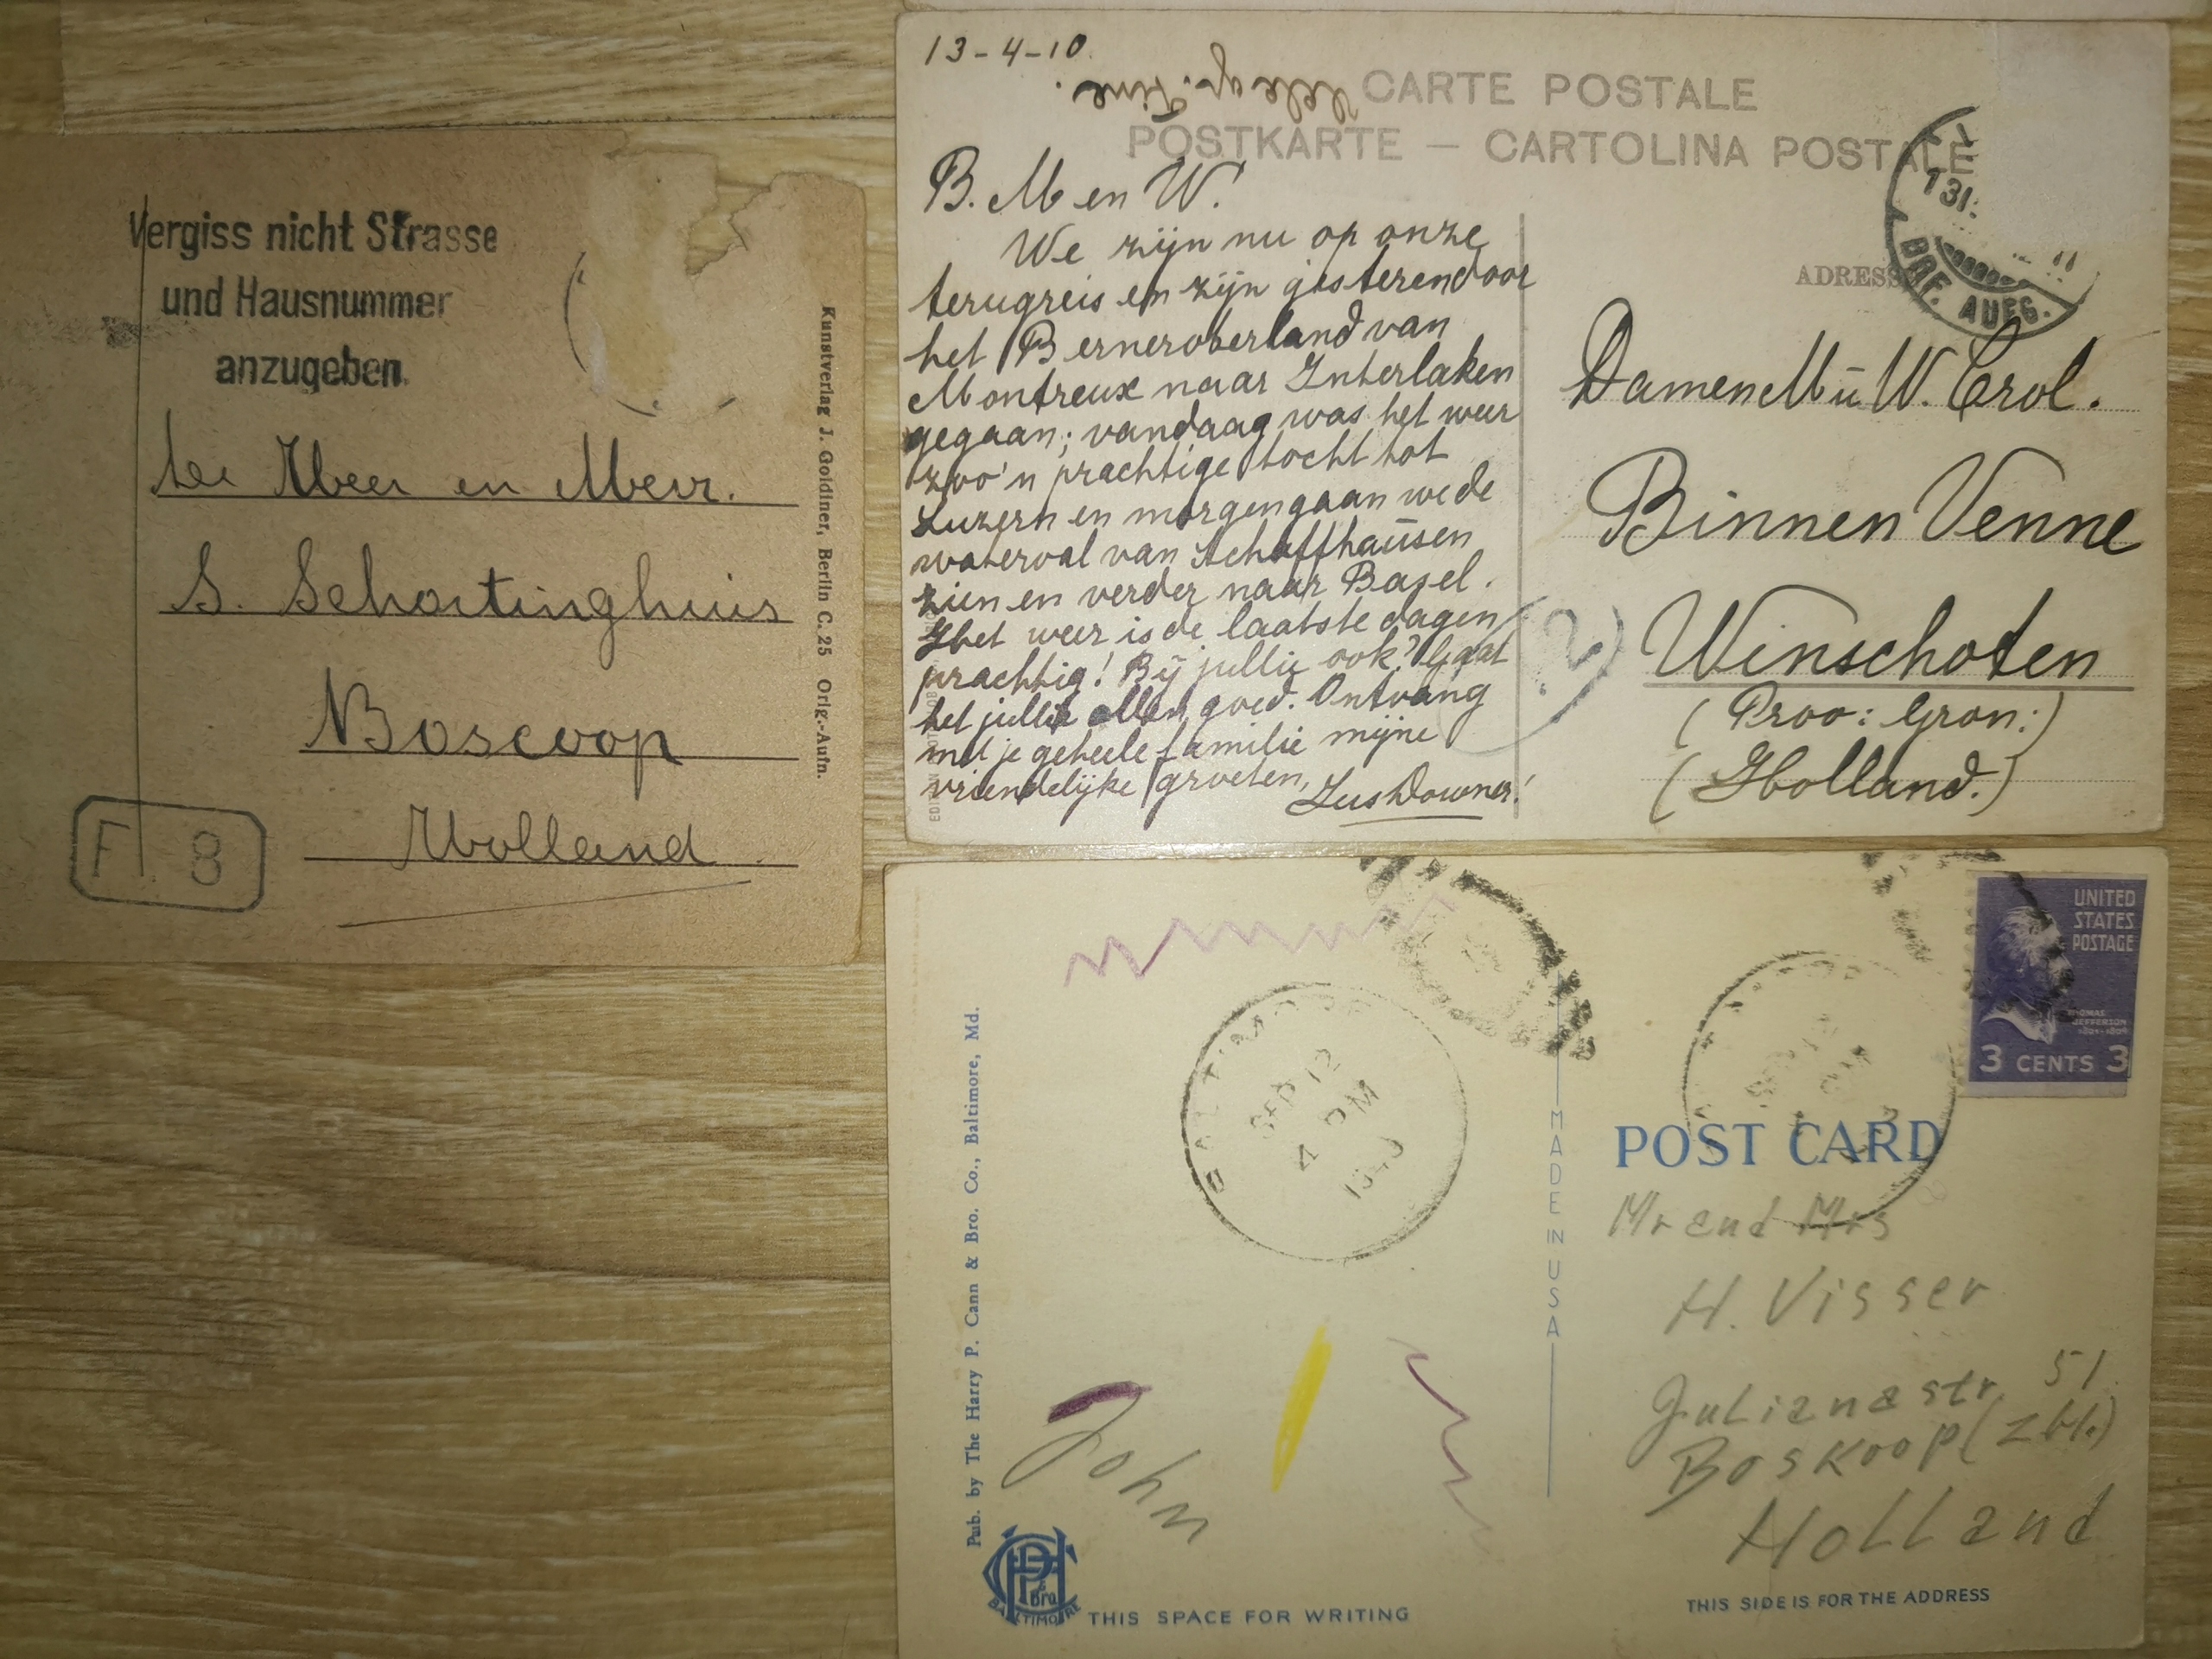 Vergiss nicht Strasse
und Hausnummer
anzugeben.
Heer en Mevr.
S. Schortinghuis
Boscoop
Holland
F. 8
Kunstverlag J. Goldiner, Berlin C. 25 Orig.-Aufn.
13-4-10.
Fine.
CARTE POSTALE
POSTKARTE — CARTOLINA POSTALE
B. M en W!
We zijn nu op onze
terugreis en zijn gisteren door
het Berneroberland van
Montreux naar Interlaken
gegaan; vandaag was het weer
zoo'n prachtige tocht tot
Luzern en morgen gaan we de
waterval van Schaffhausen
zien en verder naar Basel.
Het weer is de laatste dagen
prachtig! Bij jullie ook? Gaat
het jullie allen goed. Ontvang
met je geheele familie mijne
vriendelijke groeten,
131.
BRF. AUFG.
ADRESS
Damen M ū W. Crol.
Binnen Venne
Winschoten
(Prov: Gron:)
(Holland.)
2
UNITED
STATES
POSTAGE
THOMAS
JEFFERSON
3 CENTS 3
BALTIMORE
SEP 12
4 PM
1940
Pub. by The Harry P. Cann & Bro. Co., Baltimore, Md.
MADE IN USA
POST CARD
Mr and Mrs
H. Visser
Julianastr. 51
Boskoop (Z bl.)
Holland
John
& Bro
BALTIMORE
THIS SPACE FOR WRITING
THIS SIDE IS FOR THE ADDRESS